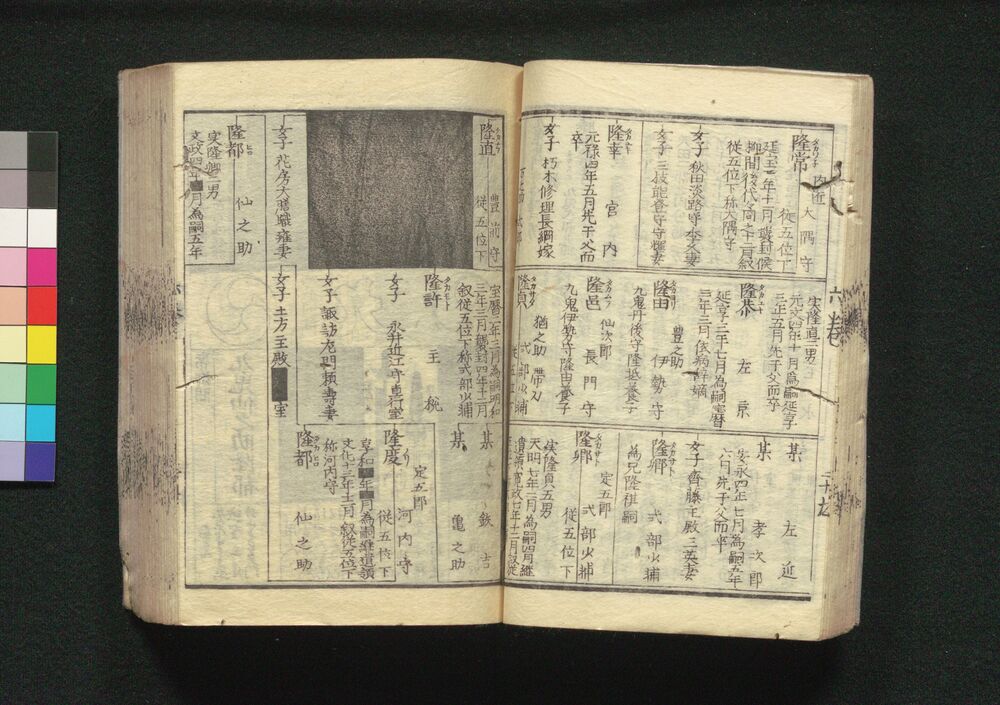 隆常 内匠 大隅守
従五位下
延宝二年十二月襲封候
従五位下称大隅守
女子 秋田淡路守季久妻
女子 三枝能登守守輝妻
隆幸 宮内
元禄四年五月先于父而
卒
女子 朽木修理長綱嫁
実隆直三男
元文四年十一月為嗣延享
三年五月先于父而卒
隆恭 左京
延享三年七月為嗣宝暦
三年三月依病辞嫡
隆由 豊之助 伊勢守
九鬼丹後守隆抵養子
隆邑 仙次郎 長門守
九鬼伊勢守隆由養子
隆貞 猶之助 帯刀
式部少輔
某 左延
某 孝次郎
安永四年七月為嗣五年
六月先于父而卒
女子 齊藤主殿三英妻
隆郷 式部少輔
為兄隆祺嗣
隆郷 定五郎 式部少輔
従五位下
実隆貞五男
天明七年二月為嗣四月継
遺領寛政七年十二月叙従
隆直 豊前守
従五位下
女子 花房大膳職雍妻
隆都 仙之助
実隆郷二男
文政四年 月為嗣五年
宝暦三年三月為嗣明和
三年三月襲封四年十二月
叙従五位下称式部少輔
隆許 主税
女子 永井近江守直行室
女子 諏訪左門頼寿妻
女子 土方主殿 室
某 鉄吉
某 亀之助
隆度 定五郎 河内守
従五位下
享和 年 月為嗣継遺領
文化十三年十二月叙従五位下
称河内守
隆都 仙之助
六巻
三十九